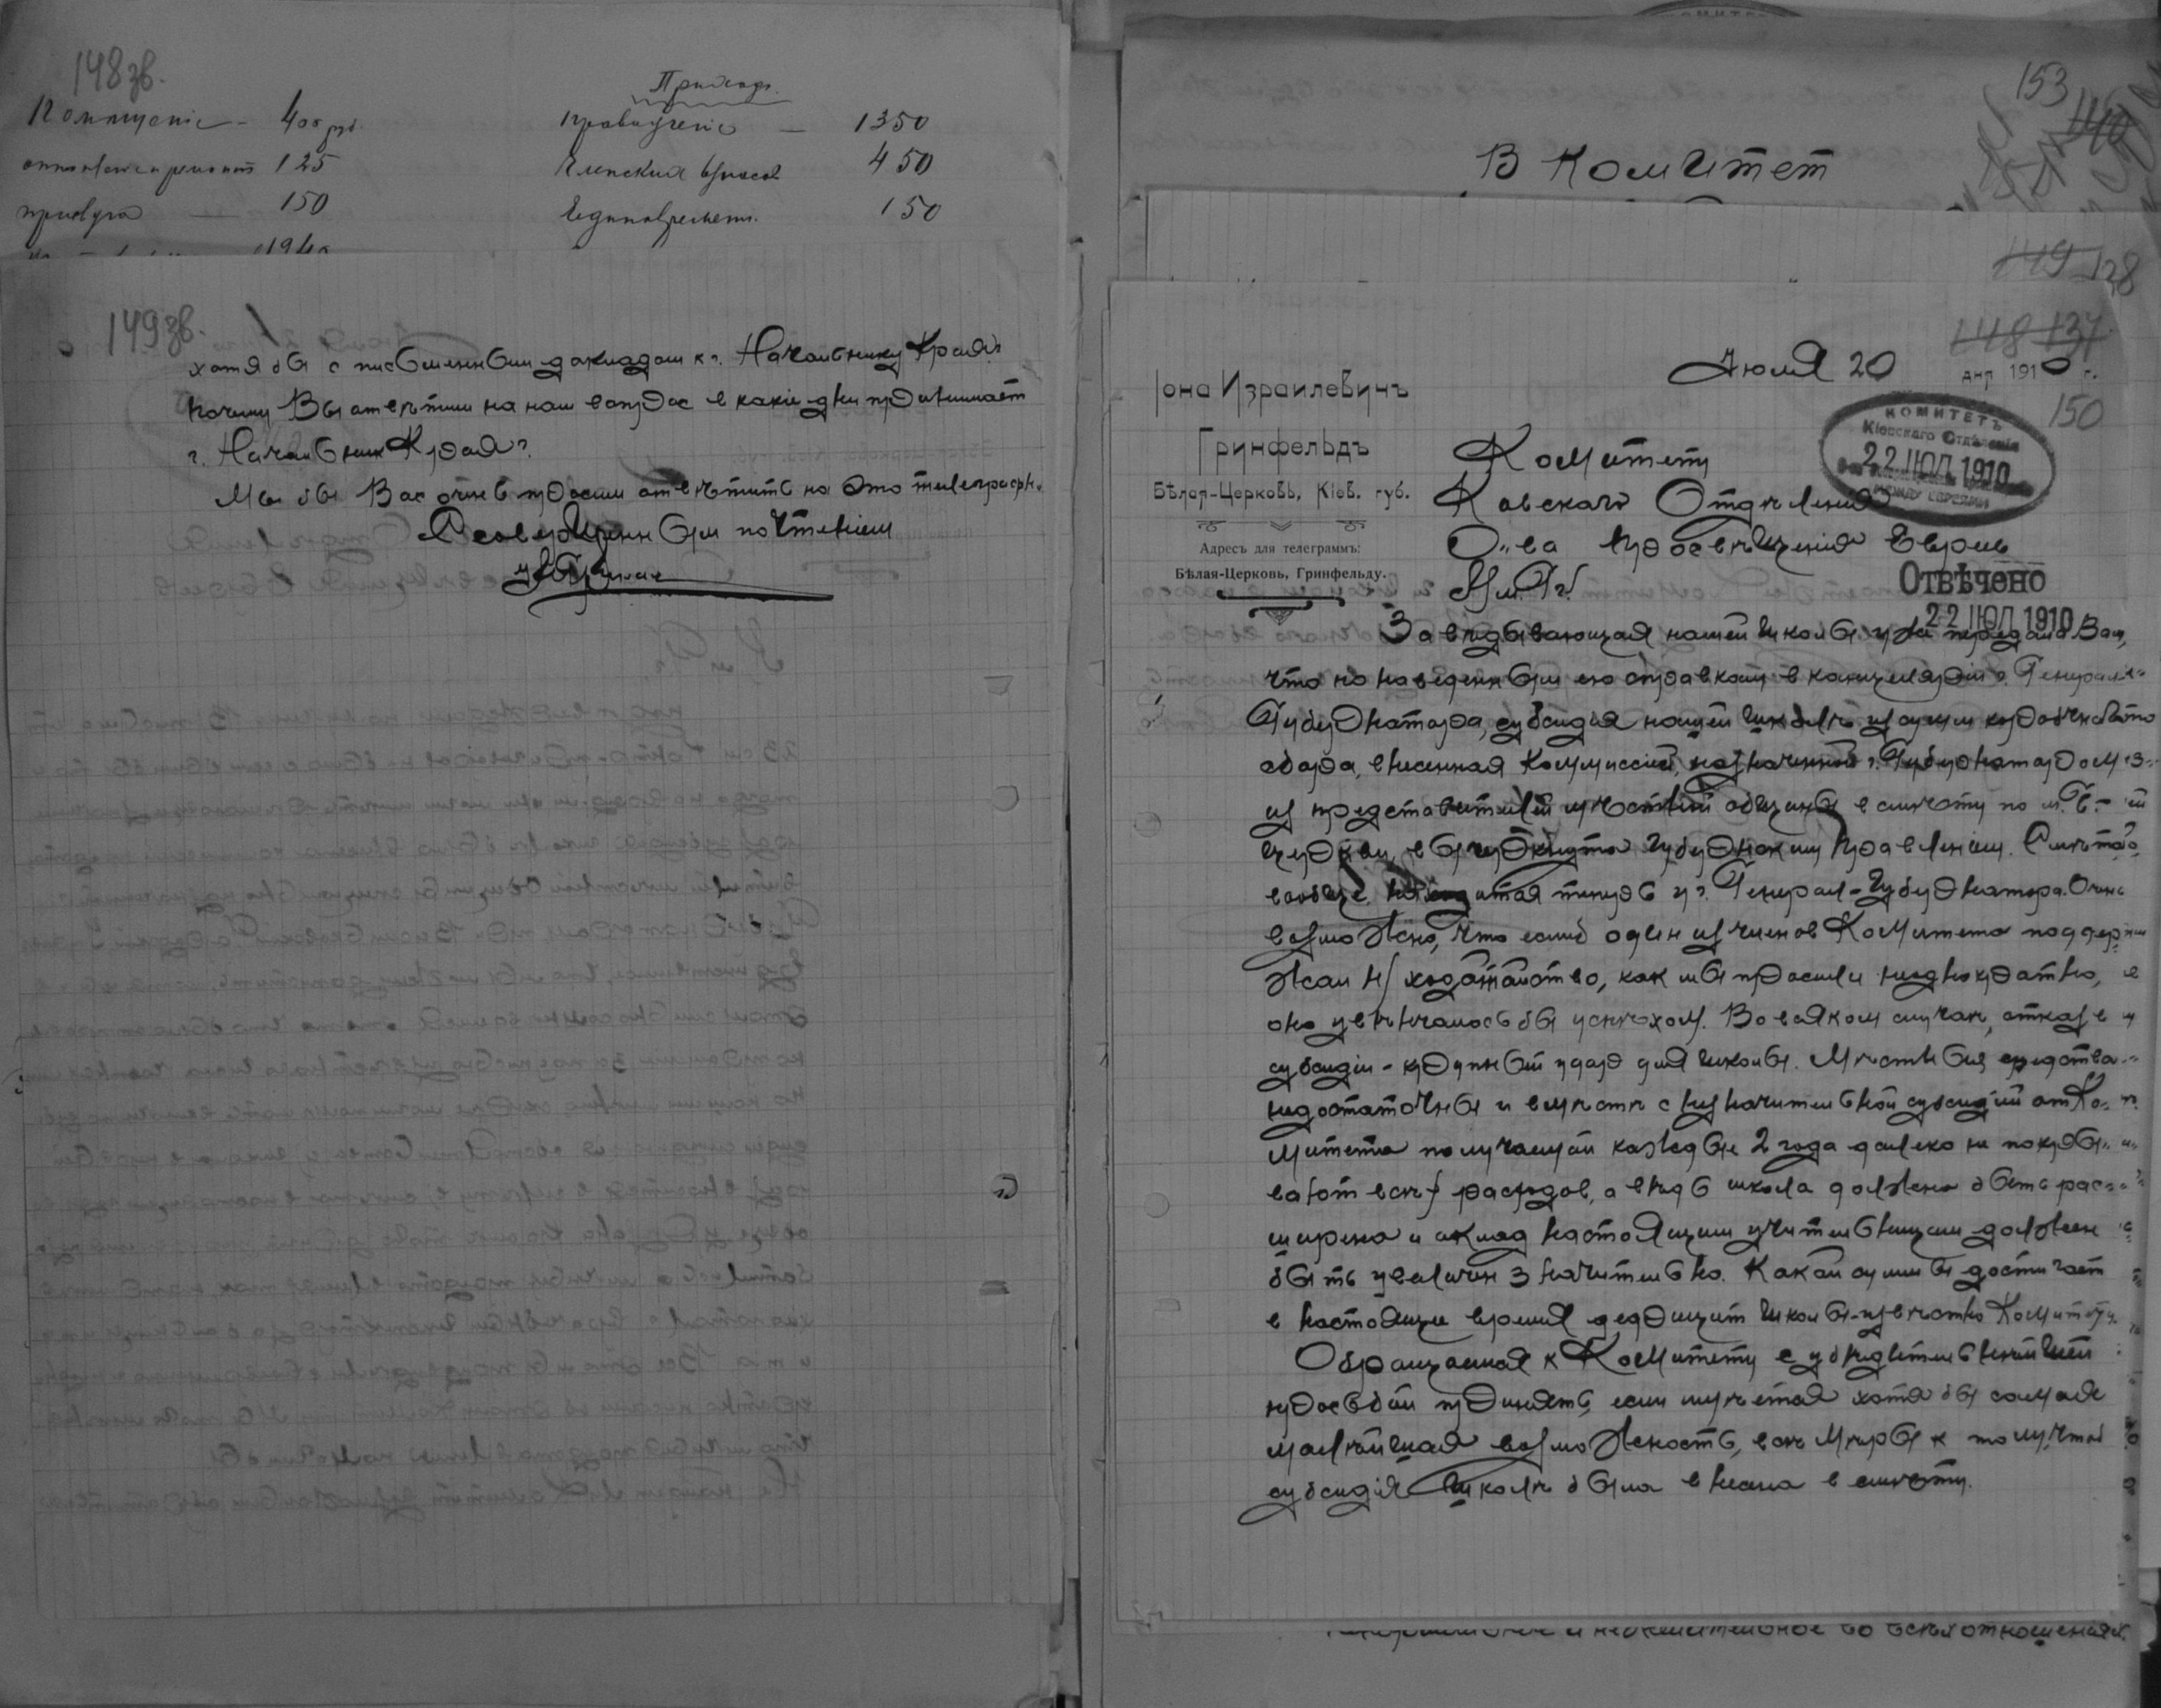 148 зв.
Приход.
Помѣщеніе — 400 руб.
отопленіе и ремонт 125
прислуга — 150
1940
Правоученіе — 1350
Членских взносов 450
Единоврем. 150
149 зв.
хотя бы с письменным докладом к г. Начальнику Края?
почему Вы отвѣтили на наш вопрос в какіе дни принимает
г. Начальник Края?
Мы бы Вас очень просили отвѣтить на это телеграфн.
С совершенным почтеніем
153
140
В Комитет
149 128
148 137
150
Іона Израилевичъ
Гринфельдъ
Бѣлая-Церковь, Кіев. губ.
Адресъ для телеграммъ:
Бѣлая-Церковь, Гринфельду.
Июля 20 дня 1910 г.
КОМИТЕТЪ
Кіевскаго Отдѣленія
22 ІЮЛ 1910
МЕЖДУ ЕВРЕЯМИ
Комитету
Киевскаго Отдѣления
О-ва Просвѣщения Евреев
М. Г.
Отвѣчено
22 ІЮЛ 1910
Завѣдывающая нашей школы уже передала Вам,
что по наведенным ею справкам в канцелярии г. Генерал-
Губернатора, субсидия нашей школѣ из сумм коробочнаго
сбора, внесенная Коммиссией, назначенной г. Губернатором
из представителей мѣстной общины в смѣту по м. Б.-
Церкви, вычеркнута Губернским Правлением. Смѣта
вообще находится теперь у г. Генерал-Губернатора. Очень
возможно, что еслиб один из членов Комитета поддер-
жал н/ ходатайство, как мы просили неоднократно,
оно увѣнчалось бы успѣхом. Во всяком случаѣ, отказ в
субсидии - крупный удар для школы. Мѣстныя средства
недостаточны и вмѣстѣ с незначительной субсидией от Ко-
митета получаемой каждые 2 года далеко не покры-
вают всѣх расходов, а вѣдь школа должна быть рас-
ширена и оклад настоящим учительницам должен
быть увеличен значительно. Какой суммы достигает
в настоящее время дефицит школы - извѣстно Комитету.
Обращаемся к Комитету с убѣдительнѣйшей
просьбой принять, если имѣется хотя бы самая
малѣйшая возможность, всѣ мѣры к тому, чтоб
субсидия школѣ была внесена в смѣту.
во всѣх отношениях.